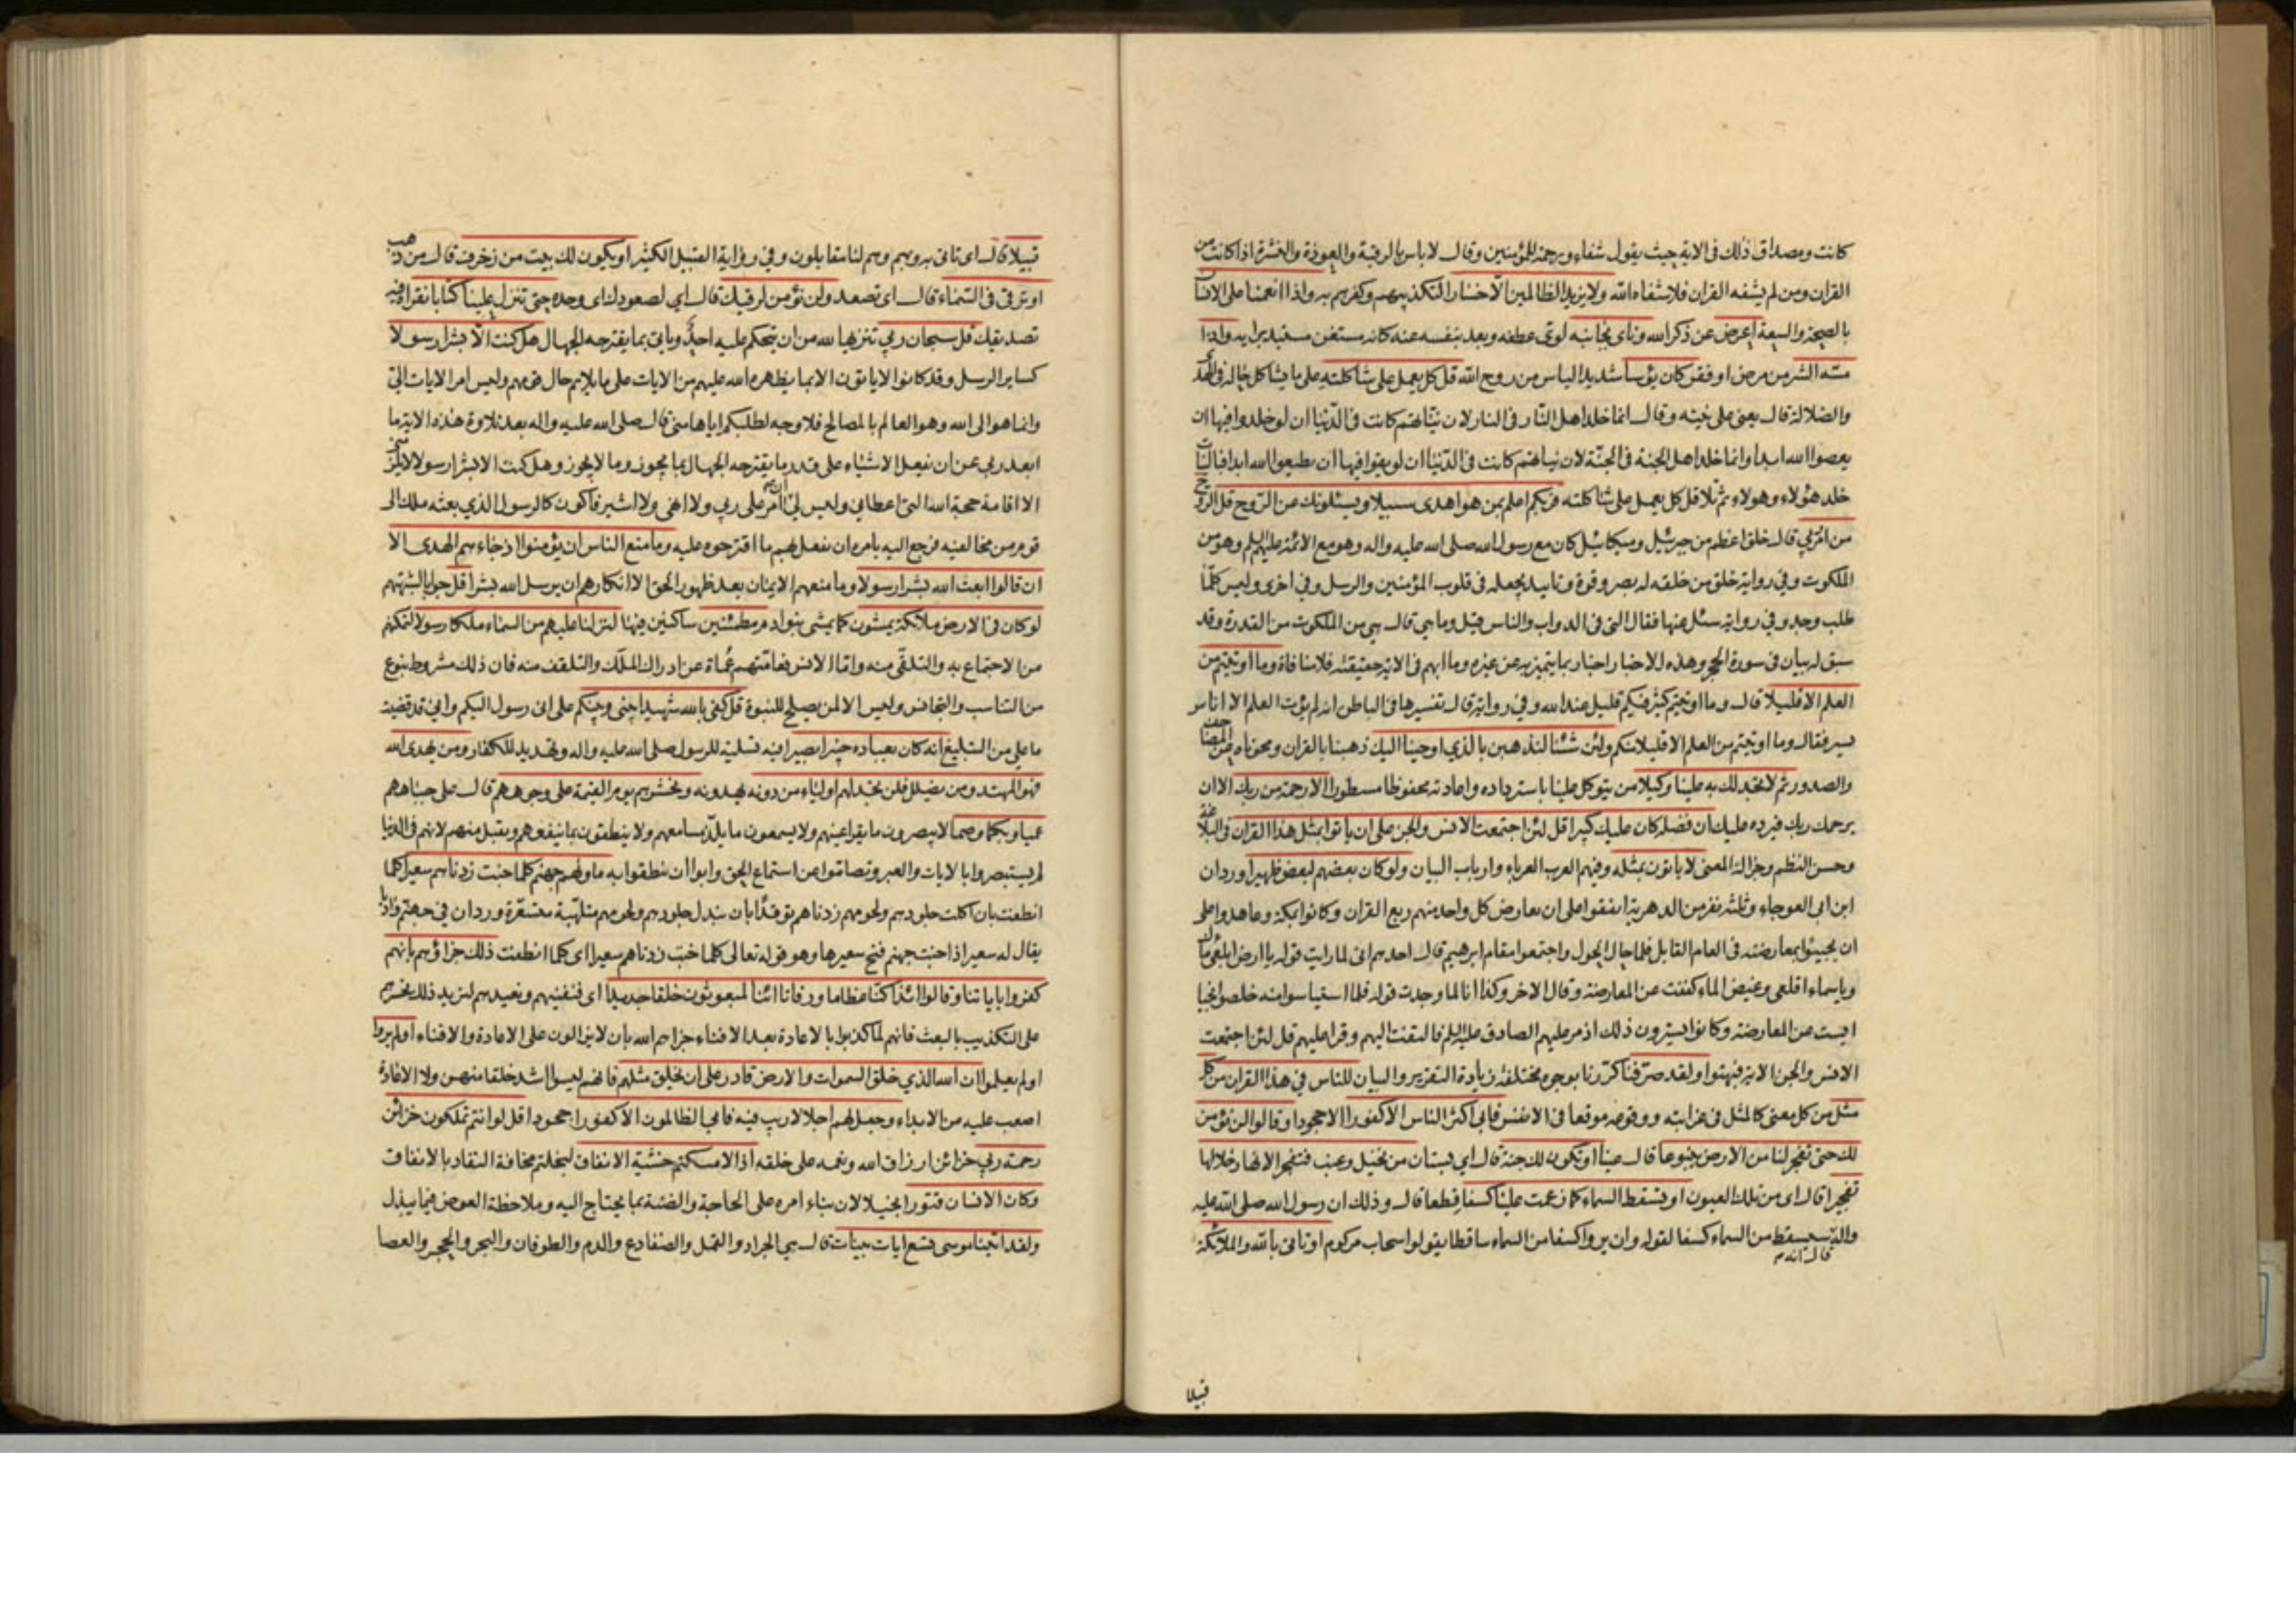 كانت ومصداق ذلك فى الاية حيث يقول شفاء ورحمة للمؤمنين وقال لا باس بالرقية والعوذة والنشرة اذا كانت من
القران ومن لم يشفه القران فلا شفاه الله ولا يزيد الظالمين الا خسارا لتكذيبهم وكفرهم به واذا انعمنا على الانسان
بالصحة والسعة اعرض عن ذكر الله وناى بجانبه لوى عطفه وبعد بنفسه عنه كانه مستغن مستبد برايه واذا
مسه الشر من مرض او فقر كان يؤسا شديد الياس من روح الله قل كل يعمل على شاكلته على ما يشاكل حاله فى الهدى
والضلالة قال يعنى على نيته وقال انما خلد اهل النار فى النار لان نياتهم كانت فى الدنيا ان لو خلدوا فيها ان
يعصوا الله ابدا وانما خلد اهل الجنة فى الجنة لان نياتهم كانت فى الدنيا ان لو بقوا فيها ان يطيعوا الله ابدا فبالنيات
خلد هؤلاء وهولاء ثم تلا قل كل يعمل على شاكلته فربكم اعلم بمن هو اهدى سبيلا ويسئلونك عن الروح قل الروح
من امر ربي قال خلق اعظم من جبرئيل وميكائيل كان مع رسول الله صلى الله عليه واله وهو مع الائمة عليهم السلم وهو من
الملكوت وفي رواية خلق من خلقه له بصر وقوة وتاييد يجعله فى قلوب المؤمنين والرسل وفي اخرى وليس كلما
طلب وجد وفي رواية سئل عنها فقال التى فى الدواب والناس قيل وما هي قال هي من الملكوت من القدرة وقد
سبق له بيان فى سورة الحجر وهذه الاخبار اخبار بما يتميز به عن غيره وما ابهم فى الاية حقيقته فلا منافاة وما اوتيتم من
العلم الا قليلا قال وما اوتيتم كثير فيكم قليل عند الله وفي رواية قال تفسيرها فى الباطن انه لم يؤت العلم الا اناس
يسير فقال وما اوتيتم من العلم الا قليلا منكم ولئن شئنا لنذهبن بالذي اوحينا اليك ذهبنا بالقران ومحوناه عن المصاحف
والصدور ثم لا تجد لك به علينا وكيلا من يتوكل علينا باسترداده واعادته محفوظا مسطورا الا رحمة من ربك الا ان
يرحمك ربك فيرده عليك ان فضله كان عليك كبيرا قل لئن اجتمعت الانس والجن على ان ياتوا بمثل هذا القران فى البلاغة
وحسن النظم وجزالة المعنى لا ياتون بمثله وفيهم العرب العرباء وارباب البيان ولو كان بعضهم لبعض ظهيرا ورد ان
ابن ابي العوجاء وثلثة نفر من الدهرية اتفقوا على ان يعارض كل واحد منهم ربع القران وكانوا بمكة وعاهدوا على
ان يجيبوا بمعارضته فى العام القابل فلما حال الحول واجتمعوا بمقام ابرهيم قال احدهم انى لما رايت قوله يا ارض ابلعى ماءك
ويا سماء اقلعى وغيض الماء كففت عن المعارضة وقال الاخر وكذا انا لما وجدت قوله فلما استياسوا منه خلصوا نجيا
ايست من المعارضة وكانوا يسترون ذلك اذ مر عليهم الصادق عليه السلم فالتفت اليهم وقرا عليهم قل لئن اجتمعت
الانس والجن الاية فبهتوا ولقد صرفنا كررنا بوجوه مختلفة زيادة التقرير والبيان للناس في هذا القران من كل
مثل من كل معنى كالمثل فى غرابته ووقوعه موقعا فى الانفس فابى اكثر الناس الا كفورا الا جحودا وقالوا لن نؤمن
لك حتى تفجر لنا من الارض ينبوعا قال عينا او تكون لك جنة قال اي بستان من نخيل وعنب فتفجر الانهار خلالها
تفجيرا قال اى من تلك العيون او تسقط السماء كما زعمت علينا كسفا قطعا قال وذلك ان رسول الله صلى الله عليه
واله قال انه سيسقط من السماء كسفا لقوله وان يروا كسفا من السماء ساقطا يقولوا سحاب مركوم او تاتى بالله والملائكة
قبيلا
قبيلا قال اى تاتى به وبهم وهم لنا مقابلون وفي رواية القبيل الكثير او يكون لك بيت من زخرف قال من ذهب
او ترقى فى السماء قال اى تصعد ولن نؤمن لرقيك قال اي لصعودك اى وحده حتى تنزل علينا كتابا نقراه فيه
تصديقك قل سبحان ربي تنزيها لله من ان يتحكم عليه احد وياتى بما يقترحه الجهال هل كنت الا بشرا رسولا
كساير الرسل وقد كانوا لا ياتون الا بما يظهره الله عليهم من الايات على ما يلايم حال قومهم وليس امر الايات الي
وانما هو الى الله وهو العالم بالمصالح فلا وجه لطلبكم اياها منى قال صلى الله عليه واله بعد تلاوة هذه الاية ما
ابعد ربي عن ان يفعل الاشياء على قدر ما يقترحه الجهال بما يجوز وما لا يجوز وهل كنت الا بشرا رسولا لا يلزمنى
الا اقامة حجة الله التى اعطانى وليس لي ان آمر على ربي ولا انهى ولا اشير فاكون كالرسول الذي بعثه ملك الى
قوم من مخالفيه فرجع اليه يامره ان يفعل بهم ما اقترحوه عليه وما منع الناس ان يؤمنوا اذ جاءهم الهدى الا
ان قالوا ابعث الله بشرا رسولا وما منعهم الايمان بعد ظهور الحق الا انكارهم ان يرسل الله بشرا قل جوابا لشبهتهم
لو كان فى الارض ملائكة يمشون كما يمشى بنو ادم مطمئنين ساكنين فيها لنزلنا عليهم من السماء ملكا رسولا لتمكنهم
من الاجتماع به والتلقى منه واما الانس فعامتهم عماة عن ادراك الملك والتلقف منه فان ذلك مشروط بنوع
من التناسب والتجانس وليس الا لمن يصلح للنبوة قل كفى بالله شهيدا بينى وبينكم على انى رسول اليكم وانى قد قضيت
ما على من التبليغ انه كان بعباده خبيرا بصيرا فيه تسلية للرسول صلى الله عليه واله وتهديد للكفار ومن يهدى الله
فهو المهتد ومن يضلل فلن تجد لهم اولياء من دونه يهدونه ونحشرهم يوم القيمة على وجوههم قال على جباههم
عميا وبكما وصما لا يبصرون ما يقر اعينهم ولا يسمعون ما يلذ مسامعهم ولا ينطقون بما ينفعهم ويقبل منهم لانهم فى الدنيا
لم يستبصروا بالايات والعبر وتصاموا عن استماع الحق وابوا ان ينطقوا به ماويهم جهنم كلما خبت زدناهم سعيرا كلما
انطفت بان اكلت جلودهم ولحومهم زدناهم توقدا بان نبدل جلودهم ولحومهم متلهبة مستعرة ورد ان في جهنم واديا
يقال له سعير اذا خبت جهنم فتح سعيرها وهو قوله تعالى كلما خبت زدناهم سعيرا اى كلما انطفت ذلك جزاؤهم بانهم
كفروا باياتنا وقالوا ائذا كنا عظاما ورفاتا ائنا لمبعوثون خلقا جديدا اى فنفنيهم ونعيدهم لنزيد ذلك تحسرهم
على التكذيب بالبعث فانهم لما كذبوا بالاعادة بعد الافناء جزاهم الله بان لا يزالون على الاعادة والافناء اولم يروا
اولم يعلموا ان الله الذي خلق السموات والارض قادر على ان يخلق مثلهم فانهم ليسوا اشد خلقا منهن ولا الاعادة
اصعب عليه من الابداء وجعل لهم اجلا لا ريب فيه فابى الظالمون الا كفورا جحودا قل لو انتم تملكون خزائن
رحمة ربي خزائن ارزاق الله ونعمه على خلقه اذا لامسكتم خشية الانفاق لبخلتم مخافة النفاد بالانفاق
وكان الانسان قتورا بخيلا لان بناء امره على الحاجة والضنة بما يحتاج اليه وملاحظة العوض فيما يبذل
ولقد اتينا موسى تسع ايات بينات قال هي الجراد والقمل والضفادع والدم والطوفان والبحر والحجر والعصا